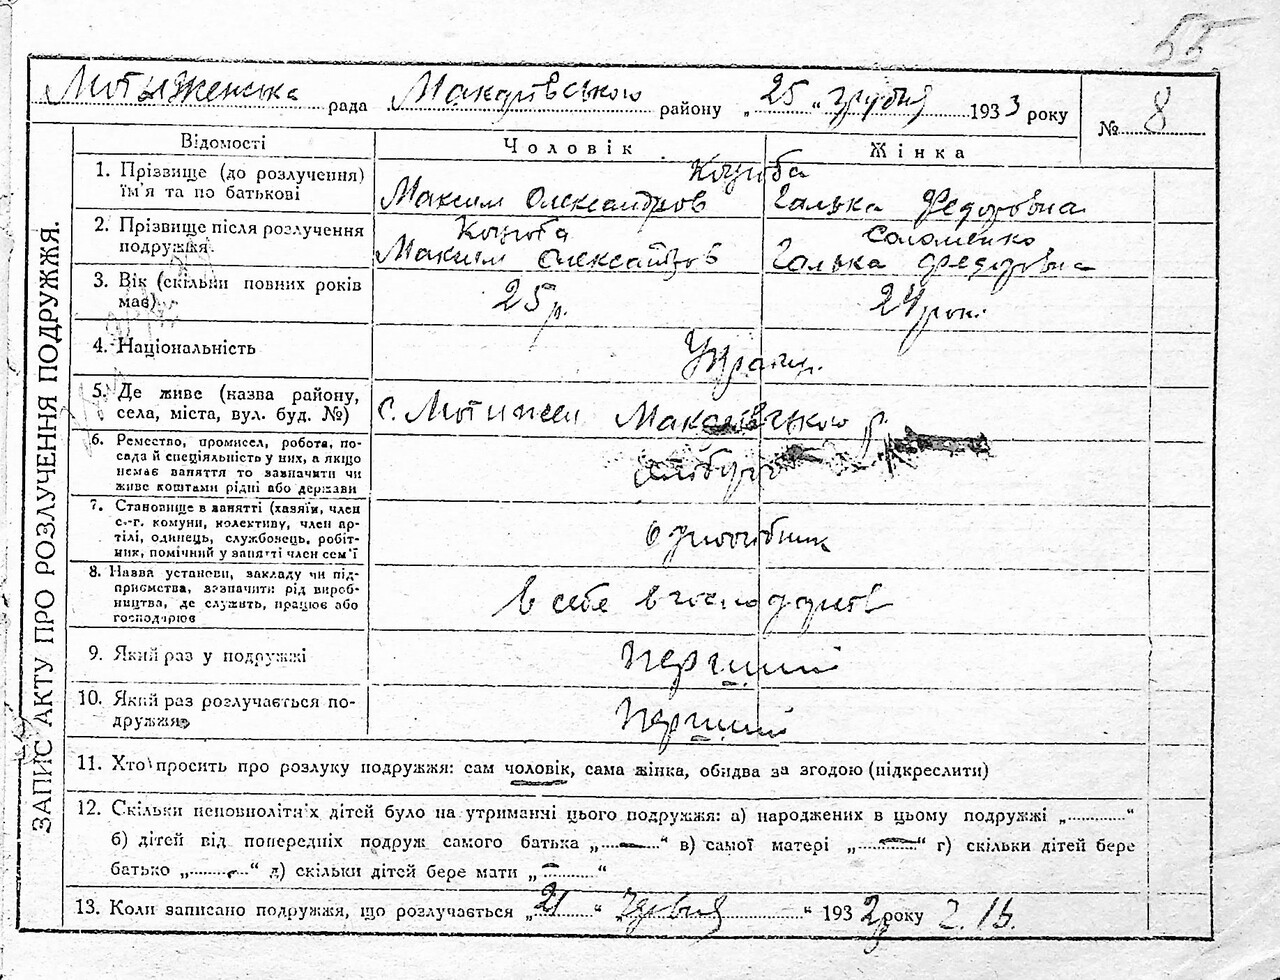 55
Мотыженська рада Макарівського району „25“ грудня 1933 року
№ 8
ЗАПИС АКТУ ПРО РОЗЛУЧЕННЯ ПОДРУЖЖЯ.
Відомості Чоловік Жінка
1. Прізвище (до розлучення) їм'я та по батькові
Коцюба
Максим Олександров Галька Федоровна
2. Прізвище після розлучення подружжя
Коцюба Соломенко
Максим Олександров Галька Федоровна
3. Вік (скільки повних років має)
25 р. 24 рок.
4. Національність
Украин.
5. Де живе (назва району, села, міста, вул. буд. №)
с. Мотижен Макарівського р.
6. Ремество, промисел, робота, по-
сада й спеціяльність у них, а якщо
немає заняття то зазначити чи
живе коштами рідні або держави
7. Становище в занятті (хазяїн, член
с.-г. комуни, колективу, член ар-
тілі, одинець, службовець, робіт-
ник, помічний у занятті член сем'ї
одноосібник
8. Назва установи, закладу чи під-
приємства, зазначити рід вироб-
ництва, де служить, працює або
господарює
в себе в господарстві
9. Який раз у подружжі
перший
10. Який раз розлучається по-
дружжя
перший
11. Хто просить про розлуку подружжя: сам чоловік, сама жінка, обидва за згодою (підкреслити)
12. Скільки неповнолітніх дітей було на утриманні цього подружжя: а) народжених в цьому подружжі „............“
б) дітей від попередніх подруж самого батька „—“ в) самої матері „—“ г) скільки дітей бере
батько „—“ д) скільки дітей бере мати „—“
13. Коли записано подружжя, що розлучається „21“ „ “ 1932 року